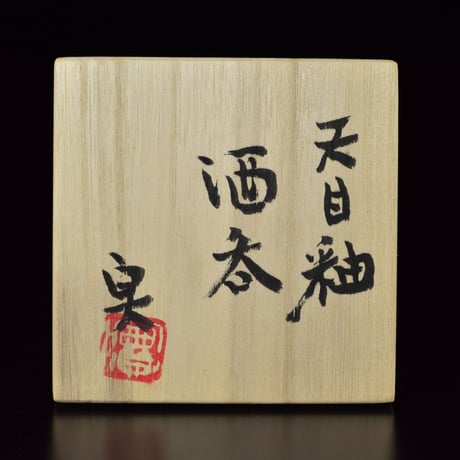 天目釉
酒呑
泉